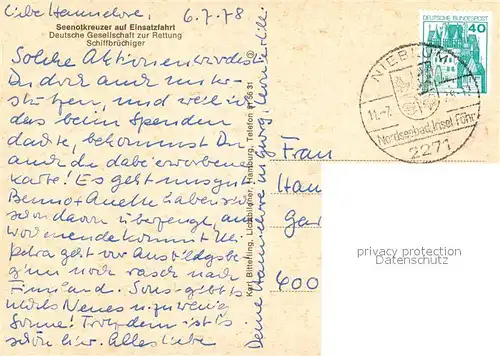 Liebe Hannelore, 6.7.78
Seenotkreuzer auf Einsatzfahrt
Deutsche Gesellschaft zur Rettung
Schiffbrüchiger
Solche Aktionen würdest
Du doch auch unter-
stützen, und weil ich
das beim Spenden
dachte, bekommst Du
auch die dabei erworbene
Karte! Es geht uns gut
Benno + Anette haben sich
schon davon überzeugt, am
Wochenende kommt
Petra geht vor Ausbildungsbe-
ginn noch rasch nach
Finnland. Sonst gibt's
nichts Neues u. zu wenig
Sonne! Trotzdem ist es
schön hier. Alles Liebe
Deine Hannelore
Karl Bitterling, Lichtbildner, Hamburg, Telefon 81 56 31
DEUTSCHE BUNDESPOST
40
NIEBLUM
11.-7.
Nordseebad Insel Föhr
2271
Frau
Han
Gar
600
privacy protection
Datenschutz